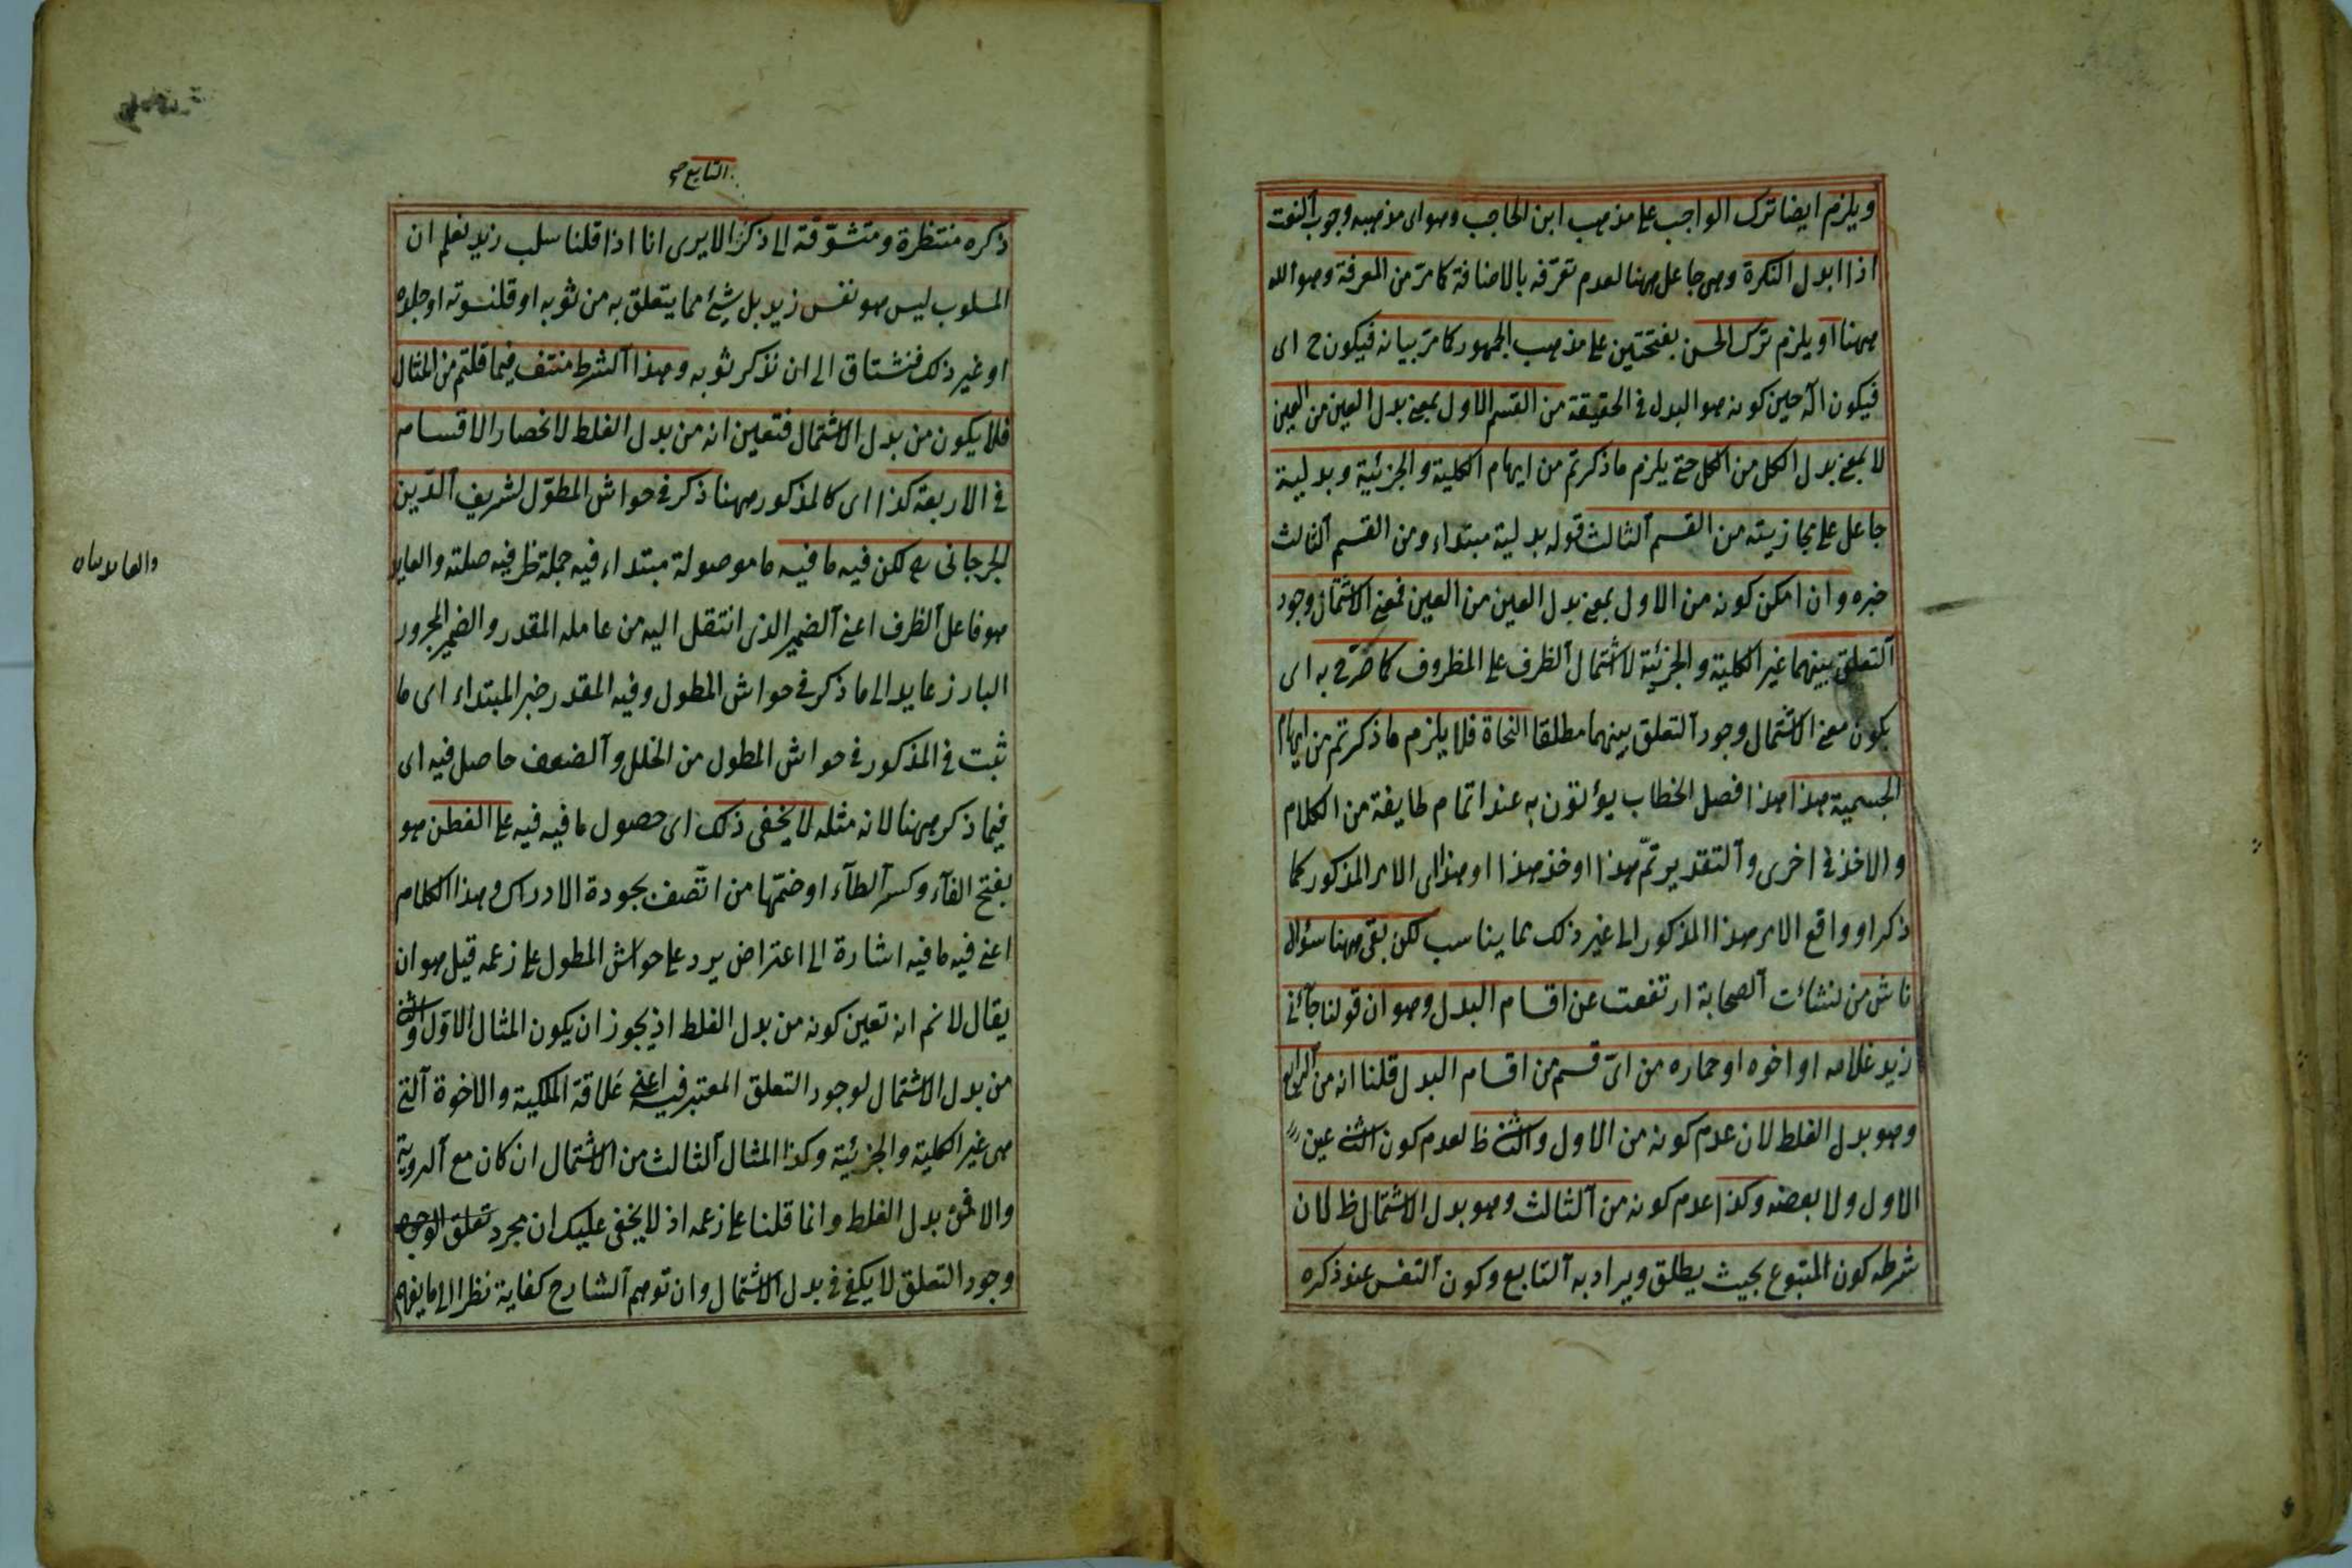 ويلزم ايضا ترك الواجب على مذهب ابن الحاجب وهو اى مذهبه وجوب النعت
اذا ابدل النكرة وهى جاعل ههنا لعدم تعرّفه بالاضافة كما مرّ من المعرفة وهو الله
ههنا او يلزم ترك الحسن بفتحتين على مذهب الجمهور كما مرّ بيانه فيكون ح اى
فيكون آله حين كونه هو البدل فى الحقيقة من القسم الاول بمعنى بدل العين من العين
لا بمعنى بدل الكل من الكل حتى يلزم ما ذكرتم من ايهام الكلية والجزئية وبدلية
جاعل على مجازيته من القسم الثالث قوله بدلية مبتداء ومن القسم الثالث
خبره وان امكن كونه من الاول بمعنى بدل العين من العين فمعنى الاشتمال وجود
التعلق بينهما غير الكلية والجزئية لاشتمال الظرف على المظروف كما صرّح به اى
بكون معنى الاشتمال وجود التعلق بينهما مطلقا النحاة فلا يلزم ما ذكرتم من ايهام
الجسمية هذا هذا فصل الخطاب يؤتون به عند اتمام طايفة من الكلام
والاخذ فى اخرى والتقدير تمّ هذا او خذ هذا او هذا اى الامر المذكور كما
ذكر او واقع الامر هذا المذكور الى غير ذلك مما يناسب لكن بقى ههنا سؤال
ناش من لنشائت الصحابة ارتفعت عن اقسام البدل وهو ان قولنا جآئنى
زيد غلامه او اخوه او حماره من اىّ قسم من اقسام البدل قلنا انه من الرابع
وهو بدل الغلط لان عدم كونه من الاول والثنى ظ لعدم كون الثنى عين
الاول ولا بعضه وكذا عدم كونه من الثالث وهو بدل الاشتمال ظ لان
شرطه كون المتبوع بحيث يطلق ويراد به التابع وكون النفس عند ذكره
التابع ص
ذكره منتظرة ومتشوّقة الى ذكر الا يرى انا اذا قلنا سلب زيد نعلم ان
المسلوب ليس هو نفس زيد بل شئ مما يتعلق به من ثوبه او قلنسوته او جلده
او غير ذلك فنشتاق الى ان نذكر ثوبه وهذا الشرط منتف فيما قلتم من المثال
فلا يكون من بدل الاشتمال فتعين انه من بدل الغلط لانحصار الاقسام
فى الاربعة كذا اى كالمذكور ههنا ذكر فى حواش المطوّل لشريف الدّين
الجرجانى لكن فيه ما فيه ما موصولة مبتداء فيه جملة ظرفية صلته والعايد
هو فاعل الظرف اعنى الضمير الذى انتقل اليه من عامله المقدر والضمير المجرور
البارز عايد الى ما ذكر فى حواش المطول وفيه المقدر خبر المبتداء اى ما
ثبت فى المذكور فى حواش المطول من الخلل والضعف حاصل فيه اى
فيما ذكر ههنا لانه مثله لا يخفى ذلك اى حصول ما فيه فيه على الفطن هو
بفتح الفآء وكسر الطآء او ضمّها من اتّصف بجودة الادراك وهذا الكلام
اعنى فيه ما فيه اشارة الى اعتراض يرد على حواش المطول على زعمه قيل هو ان
يقال لا نم انه تعين كونه من بدل الغلط اذ يجوز ان يكون المثال الاوّل والثنى
من بدل الاشتمال لوجود التعلق المعتبر فيه اعنى علاقة الملكية والاخوة التى
هى غير الكلية والجزئية وكذا المثال الثالث من الاشتمال ان كان مع الروية
والا فمن بدل الغلط وانما قلنا على زعمه اذ لا يخفى عليك ان مجرد تعلق الوجه
وجود التعلق لا يكفى فى بدل الاشتمال وان توهم الشارح كفاية نظرا الى ما يفهم